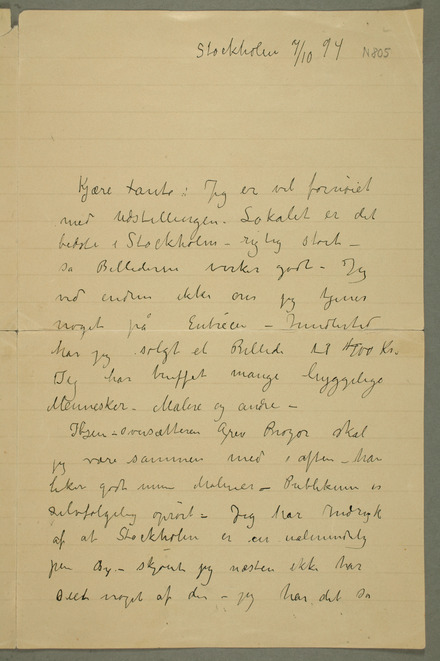 Stockholm 7/10 94 N805
Kjære tante! Jeg er vel fornøiet
med Udstillingen. Lokalet er det
bedste i Stockholm – rigtig stort –
så Billederne virker godt – Jeg
ved endnu ikke om jeg tjener
noget på Entréen – Imidlertid
har jeg solgt et Billede til 400 Kr.
Jeg har truffet mange hyggelige
Mennesker – Malere og andre –
Ibsen-oversætteren Grev Prozor skal
jeg være sammen med i aften – han
liker godt mine Malerier – Publikum er
selvfølgelig oprørt – Jeg har Indtryk
af at Stockholm er en ualmindelig
pen By – skjønt jeg næsten ikke har
seet noget af den – jeg har det så